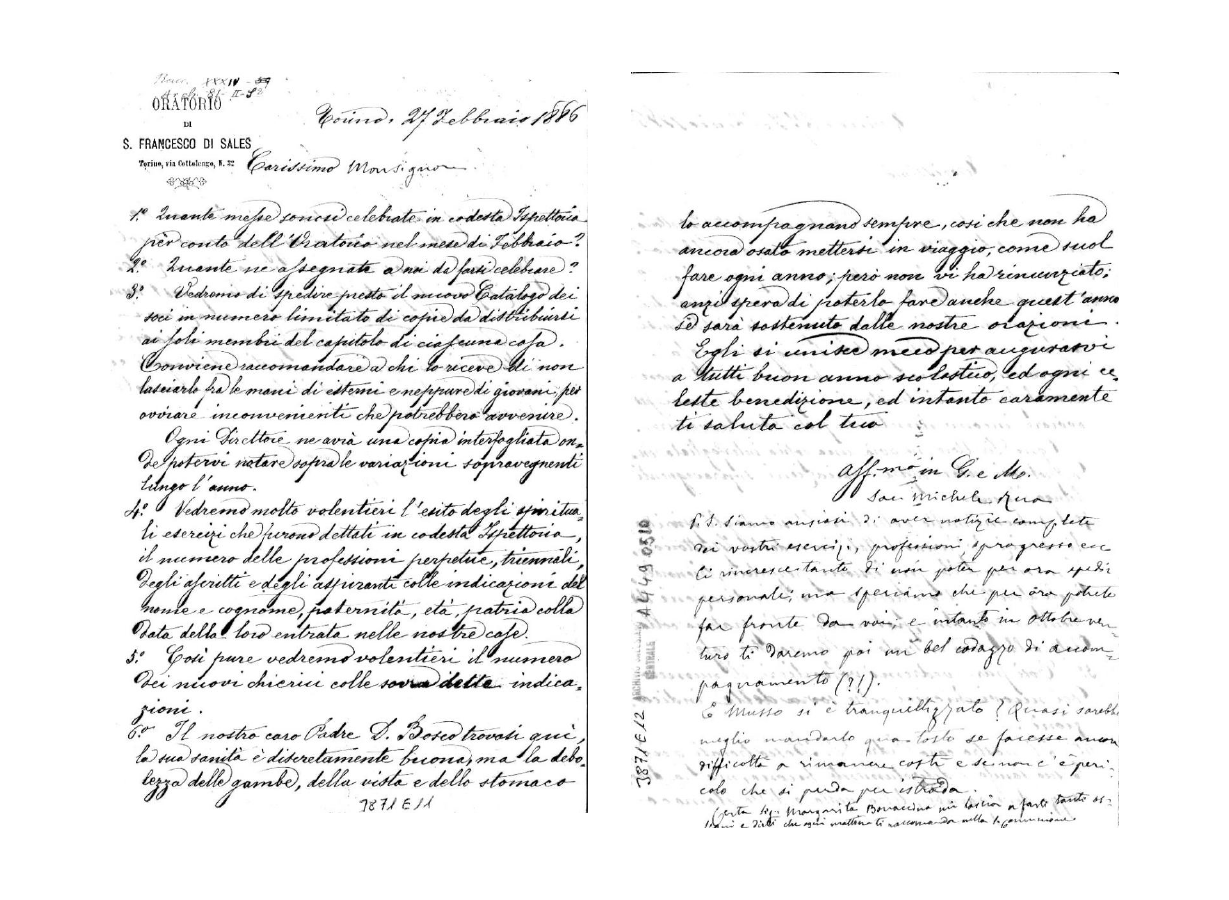 ORATORIO
DI
S. FRANCESCO DI SALES
Torino, via Cottolengo, N. 32
Torino, 27 Febbraio 1886
Carissimo Monsignore
1º Quante messe sonosi celebrate in codesta Ispettoria
per conto dell'Oratorio nel mese di Febbraio?
2º Quante ne assegnate a noi da farsi celebrare?
3º Vedremo di spedire presto il nuovo Catalogo dei
soci in numero limitato di copie da distribuirsi
ai soli membri del capitolo di ciascuna casa.
Conviene raccomandare a chi lo riceve di non
lasciarlo fra le mani di esterni e neppure di giovani, per
ovviare inconvenienti che potrebbero avvenire.
Ogni Direttore ne avrà una copia interfogliata on=
de potervi notare sopra le variazioni sopravegnenti
lungo l'anno.
4º Vedremo molto volentieri l'esito degli spiritua=
li esercizi che furono dettati in codesta Ispettoria,
il numero delle professioni perpetue, triennali,
degli ascritti e degli aspiranti colle indicazioni del
nome e cognome, paternità, età, patria colla
data della loro entrata nelle nostre case.
5º Così pure vedremo volentieri il numero
dei nuovi chierici colle sovra dette indica=
zioni.
6º Il nostro caro Padre D. Bosco trovasi quì,
la sua sanità è discretamente buona, ma la debo=
lezza delle gambe, della vista e dello stomaco
3871 E 11
lo accompagnano sempre, così che non ha
ancora osato mettersi in viaggio, come suol
fare ogni anno; però non vi ha rinunziato;
anzi spera di poterlo fare anche quest'anno
se sarà sostenuto dalle nostre orazioni.
Egli si unisce meco per augurarvi
a tutti buon anno scolastico, ed ogni ce=
leste benedizione, ed intanto caramente
ti saluta col tuo
Aff.mo in G. e M.
Sac. Michele Rua
P.S. Siamo ansiosi di aver notizie complete
dei vostri esercizi, professioni, progresso ecc
Ci rincresce tanto di non poter per ora spedir
personali; ma speriamo che per ora potrete
far fronte da voi, e intanto in ottobre ven=
turo ti daremo poi un bel codazzo di accom=
pagnamento (?!).
E Musso si è tranquillizzato? Quasi sarebbe
meglio mandarlo qua tosto se facesse ancora
difficoltà a rimanere costì e se non c'è peri=
colo che si perda per istrada.
Certa Sig. Margarita mi lascia a farti tanti os=
sequi e dirti che ogni mattina ti raccomanda nella S. Comunione
3871 E 12
A 449 0310
CENTRALE